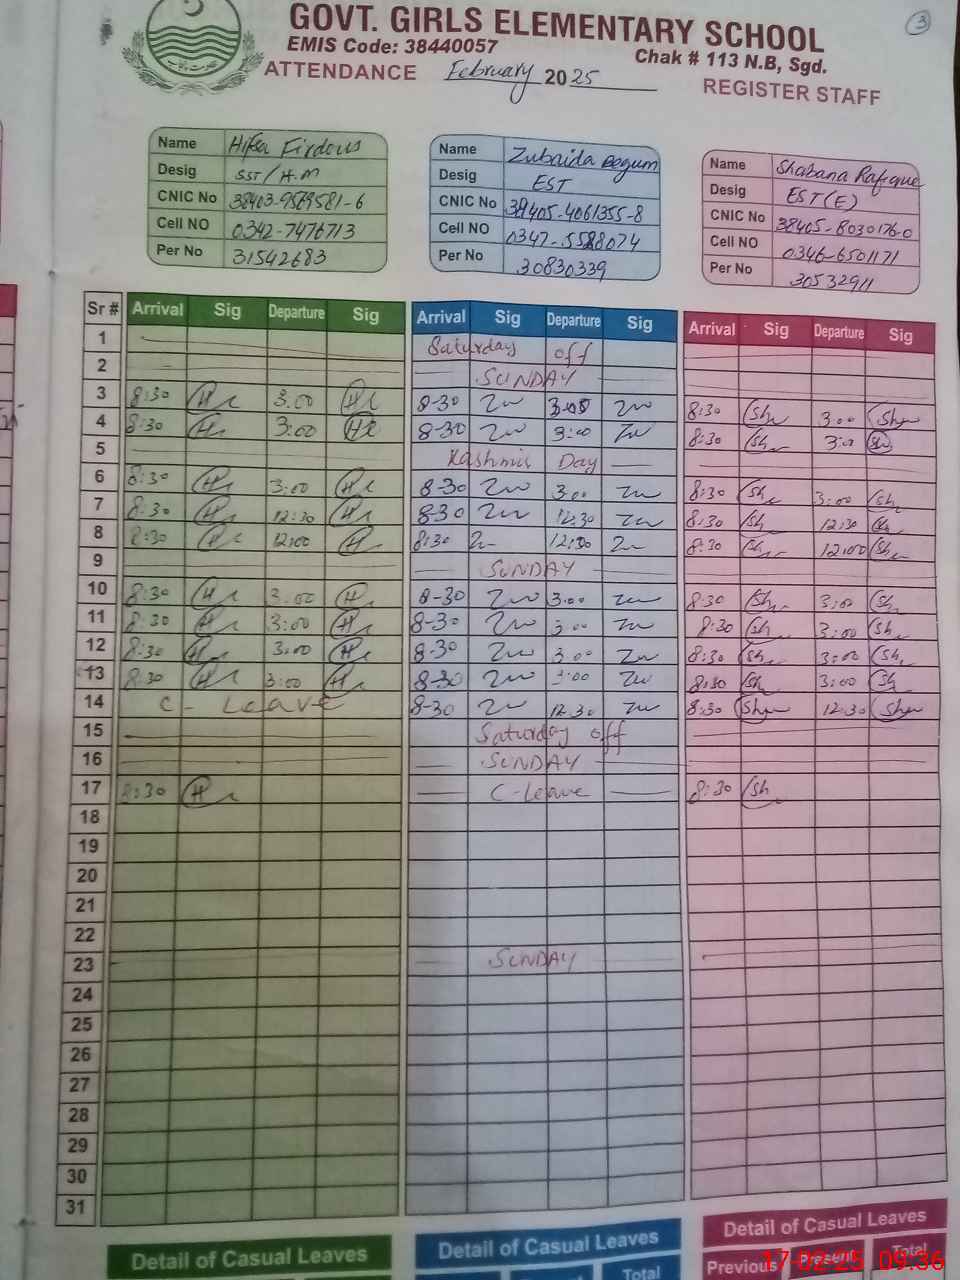 3
GOVT. GIRLS ELEMENTARY SCHOOL
EMIS Code: 38440057
Chak # 113 N.B, Sgd.
ATTENDANCE February 2025
REGISTER STAFF
Name Hifsa Firdous
Desig SST/H.M
CNIC No
Cell NO 0342-7476713
Per No 31542683
Name Zubaida Begum
Desig EST
CNIC No 38405-4061355-8
Cell NO 0347-5588074
Per No 30830339
Name Shabana Rafique
Desig EST(E)
CNIC No 38405-8030176-0
Cell NO 0346-6501171
Per No 30532911
Sr # Arrival Sig Departure Sig Arrival Sig Departure Sig Arrival Sig Departure Sig
1 Saturday off
2 SUNDAY
3 8:30 3.00 8-30 3.00 8:30 3:00
4 8:30 3:00 8-30 3:00 8:30 3:00
5 Kashmir Day
6 8:30 3:00 8-30 3.00 8:30 3:00
7 8:30 12:30 8-30 12:30 8:30 12:30
8 8:30 12:00 8:30 12:00 8:30 12:00
9 SUNDAY
10 8:30 3.00 8-30 3.00 8:30 3:00
11 8:30 3:00 8-30 3.00 8:30 3:00
12 8:30 3:00 8-30 3.00 8:30 3:00
13 8:30 3:00 8-30 3:00 8:30 3:00
14 C-Leave 8-30 12.30 8:30 12:30
15 Saturday off
16 SUNDAY
17 8:30 C-Leave 8:30
18
19
20
21
22
23 SUNDAY
24
25
26
27
28
29
30
31
Detail of Casual Leaves
Detail of Casual Leaves
Total
Detail of Casual Leaves
Previous Present Total
17-02-25 09:36